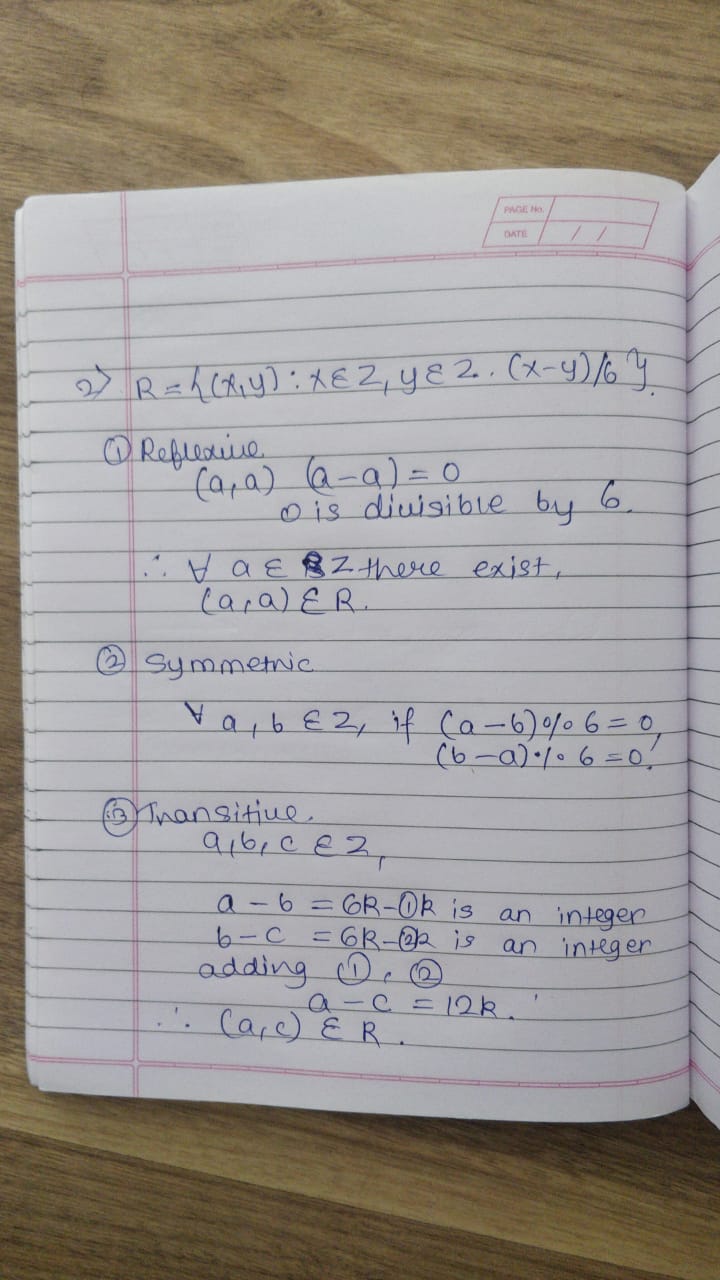 PAGE No.
DATE / /
2) R = {(x,y) : x ∈ Z, y ∈ Z . (x-y)/6 }.
① Reflexive
(a,a) (a-a) = 0
0 is divisible by 6.
∴ ∀ a ∈ Z there exist,
(a,a) ∈ R.
② Symmetric
∀ a, b ∈ Z, if (a-b)%6 = 0,
(b-a)%6 = 0.
③ Transitive.
a, b, c ∈ Z,
a - b = 6k - ① k is an integer
b - c = 6k - ② k is an integer
adding ①, ②
a - c = 12k.
∴ (a,c) ∈ R.